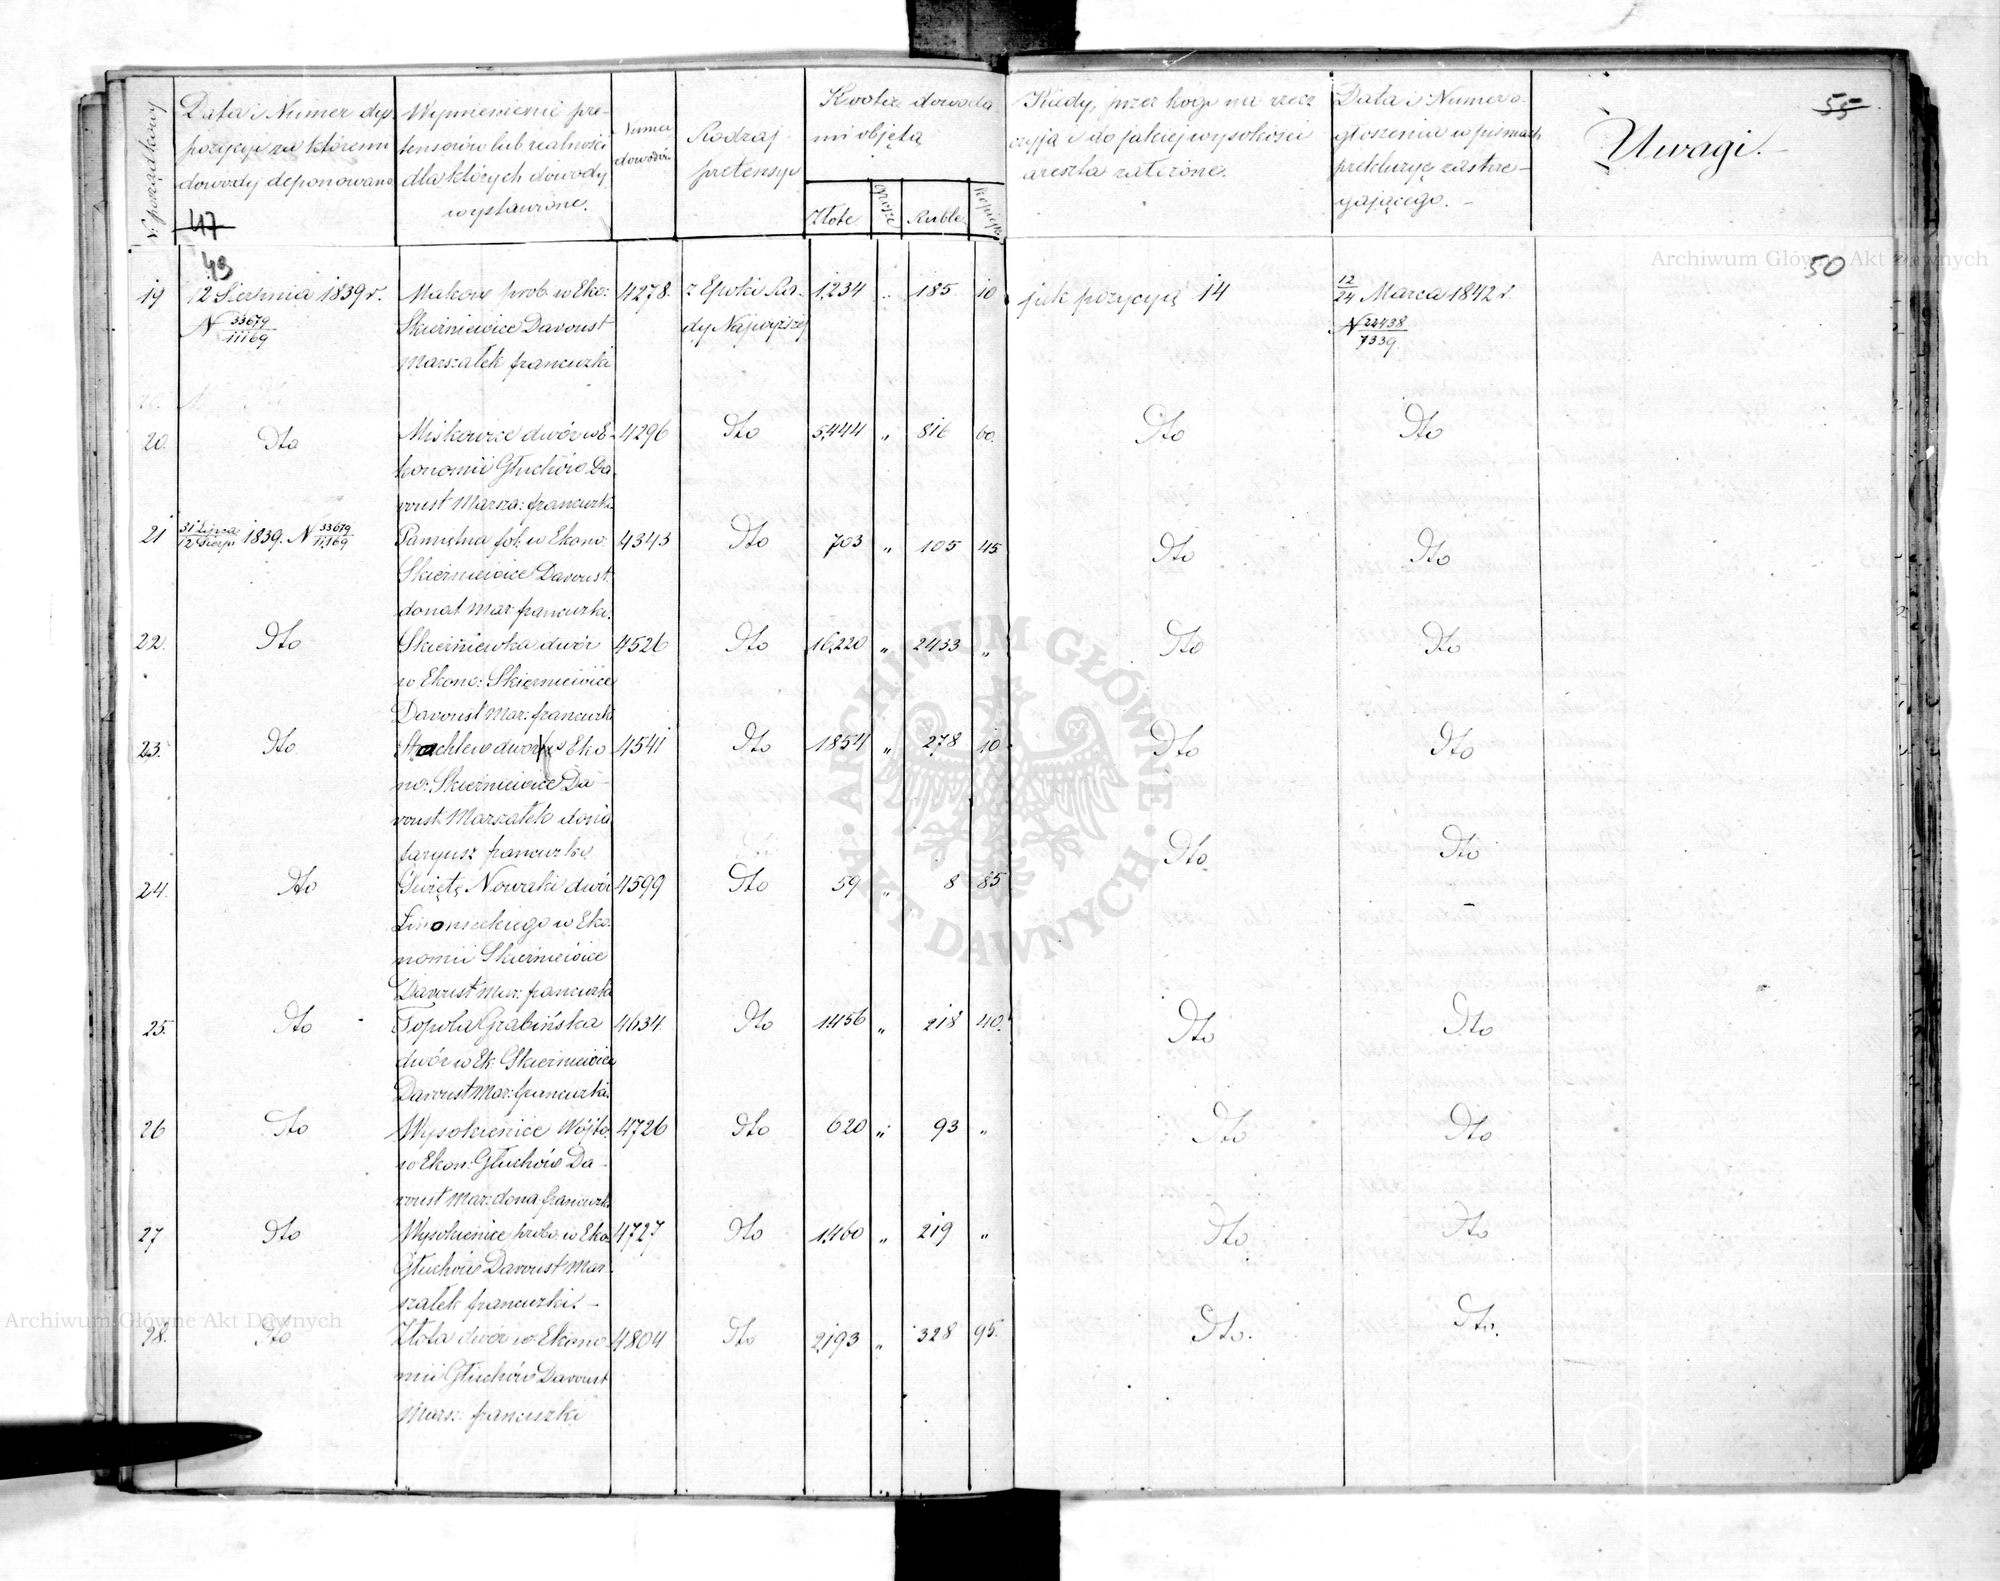 N. porządkowy
Data i Numer dys-
pozycyi za któremi
dowody deponowano
47
43
Wymienienie pre-
tensorów lub realności
dla których dowody
wystawione.
Numer
dowodów
Rodzaj
pretensyi
Kwota dowoda-
mi objęta
Złote
grosze
Ruble
kopiejki
Kiedy, przez kogo na rzecz
czyją i do jakiej wysokości
areszta założone.
Data i Numer o-
głoszenia w pismach
prekluzyę zastrze-
gającego. -
Uwagi. -
55
50
19 12 Sierpnia 1839 r. Maków prob. w Eko: 4278. z Epoki Ra- 1,234 „ 185 10 jak pozycyi 14 12/24 Marca 1842 r.
N 33679/11169 Skierniewice Davoust dy Najwyższej N 22438/7339.
Marszałek francuzki
20. Dto Miskowice dwór w E- 4296 Dto 5,444 „ 816 60. Dto Dto
konomii Głuchów Da-
voust Marsza: francuzki
21 31 Lipca/12 Sierp 1839. N 33679/11,169 Pamiętna fol: w Ekono: 4343 Dto 703 „ 105 45 Dto Dto
Skierniewice Davoust
donat. Mar: francuzki.
22. Dto Skierniewka dwór 4526 Dto 16,220 „ 2433 „ Dto Dto
w Ekono: Skierniewice
Davoust Mar: francuzki
23. Dto Stachlew dwór w Eko 4541 Dto 1854 „ 278 10 Dto Dto
no: Skierniewice Da-
voust Marszałek dona
taryusz francuzki
24. Dto Święte Nowaki dwór 4599 Dto 59 „ 8 85 Dto Dto
w Eko-
nomii Skierniewice
Davoust Mar: francuzki
25. Dto Topola Grabińska 4634. Dto 1456 „ 218 40. Dto Dto
dwór w Ek: Skierniewice
Davoust Mar: francuzki.
26 Dto Wysokienice Wójto. 4726 Dto 620 „ 93 „ Dto Dto
w Ekon: Głuchów Da-
voust Mar: dona francuzki
27 Dto Wysokienice probo. w Eko. 4727 Dto 1,460 „ 219 „ Dto Dto
Głuchów Davoust Mar-
szałek francuzki. -
28. Dto Złota dwór w Ekono- 4804 Dto 2,193 „ 328 95. Dto. Dto.
mii Głuchów Davoust
Mars: francuzki
Archiwum Główne Akt Dawnych
Archiwum Główne Akt Dawnych
ARCHIWUM GŁÓWNE
AKT DAWNYCH